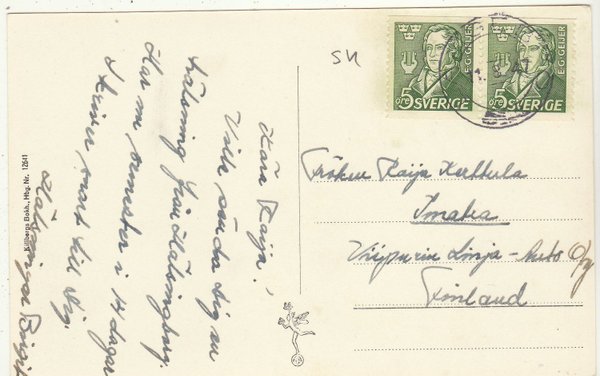 SH
5 öre SVERIGE
E.G. GEIJER
5 öre SVERIGE
E.G. GEIJER
Kära Raija!
Vill sända dig en
hälsning från Hälsingborg.
Har nu semester i 14 dagar
skriver snart till Dig.
Hälsningar Birgit
Killbergs Bokh., Hbg. Nr. 12641
Fröken Raija
Imatra
Viipurin Linja-Auto O/y
Finland